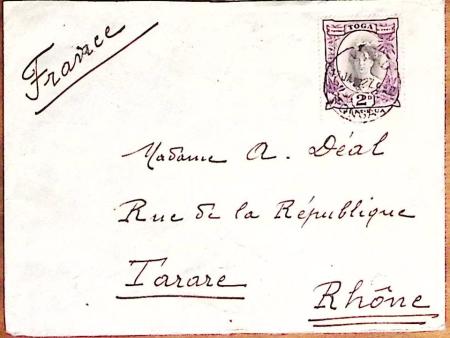 France
TOGA
2D
Madame A. Déal
Rue de la République
Tarare
Rhône